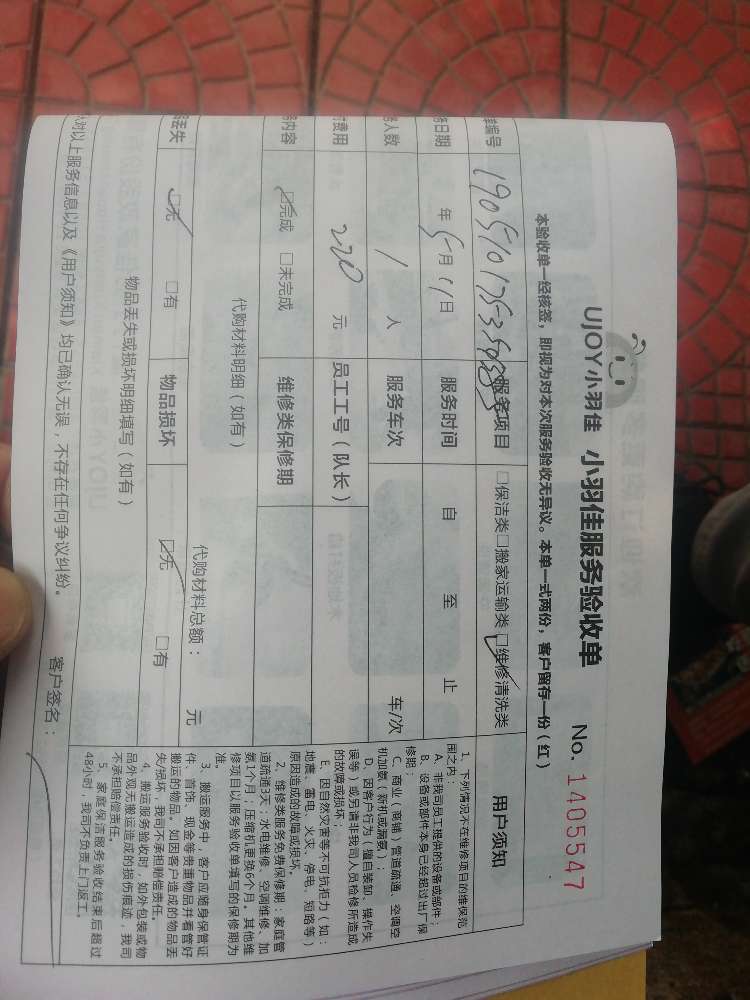 UJOY小羽佳 小羽佳服务验收单 No. 1405547
本验收单一经核签，即视为对本次服务验收无异议。本单一式两份，客户留存一份（红）
编号 服务项目 □保洁类□搬家运输类☑维修清洗类
日期 年 5月11日 服务时间 自 至 止
人数 1 人 服务车次 车/次
费用 220 元 员工工号（队长）
内容 ☑完成 □未完成 维修类保修期
代购材料明细（如有） 代购材料总额： 元
丢失 ☑无 □有 物品损坏 ☑无 □有
物品丢失或损坏明细填写（如有）
对以上服务信息以及《用户须知》均已确认无误，不存在任何争议纠纷。 客户签名：
用户须知
1、下列情况不在维修项目的维保范
围之内：
A、非我司员工提供的设备或部件；
B、设备或部件本身已经超过出厂保
修期；
C、商业（商铺）管道疏通、空调空
机加氨（新机或漏氨）；
D、因客户行为（擅自装卸、操作失
误等）或另请非我司人员检修所造成
的故障或损坏；
E、因自然灾害等不可抗拒力（如：
地震、雷电、火灾、停电、短路等）
原因造成的故障或损坏。
2、维修类服务免费保修期：家庭管
道疏通3天；水电维修、空调维修、加
氨1个月；压缩机更换6个月。其他维
修项目以服务验收单填写的保修期为
准。
3、搬运服务中，客户应随身保管证
件、首饰、现金等贵重物品并看管好
搬运的物品。如因客户造成的物品丢
失/损坏，我司不承担赔偿责任。
4、搬运服务验收时，如外包装或物
品外观无搬运造成的损伤痕迹，我司
不承担赔偿责任。
5、家庭保洁服务验收结束后超过
48小时，我司不负责上门返工。